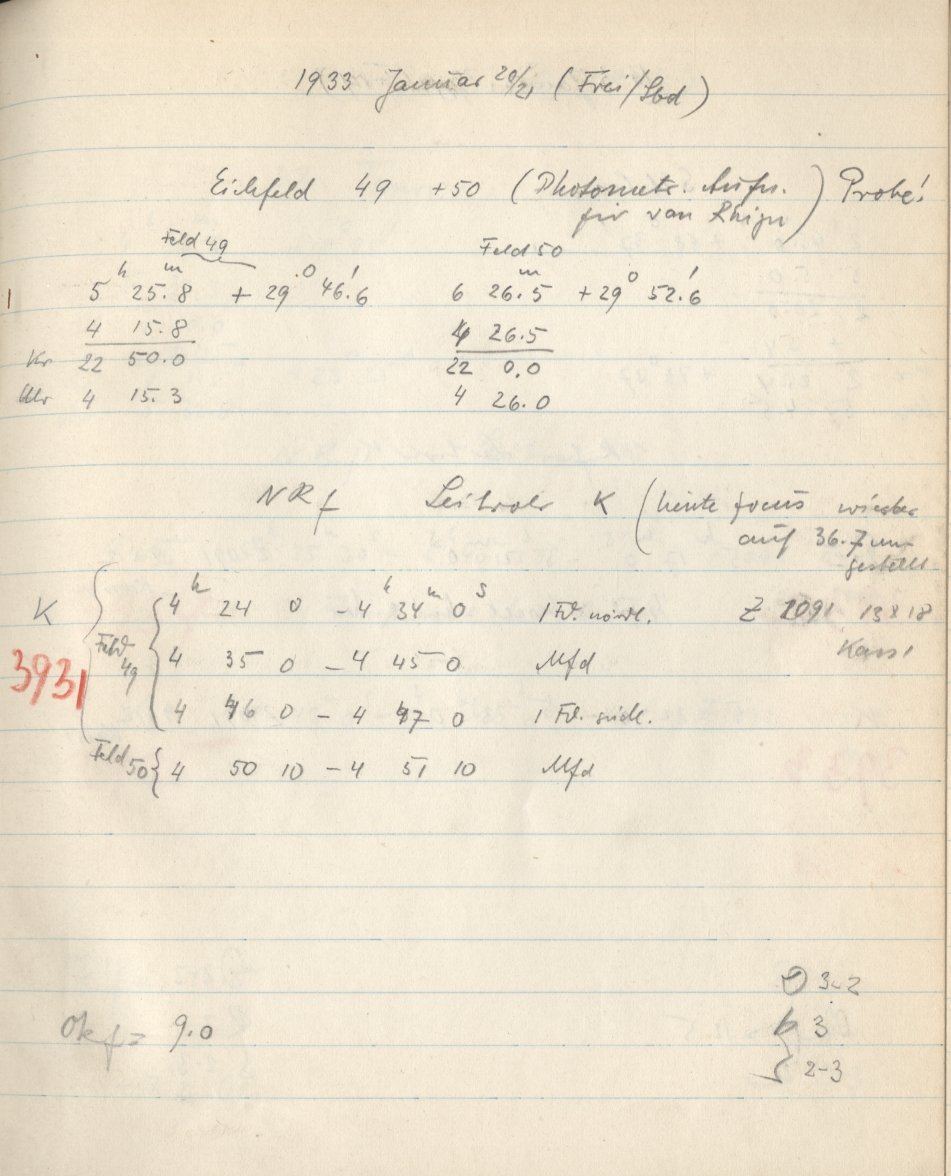 1933 Januar 20/21 (Frei/Sbd)
Eichfeld 49 +50 (Photometr. Aufn. für van Rhijn) Probe!
Feld 49 Feld 50
5h 25.m8 + 29.°46.'6 6 26.m5 +29° 52.'6
4 15.8 4 26.5
Kr 22 50.0 22 0.0
Uhr 4 15.3 4 26.0
NRf Leitrohr K (heute focus wieder
auf 36.7 um-
gestellt
K 4h 24 0 - 4h 34m 0s 1 Fd. nördl. Z 1091 13x18
3931 Feld 49 4 35 0 - 4 45 0 Mfd
4 46 0 - 4 47 0 1 Fd. südl.
Feld 50 4 50 10 - 4 51 10 Mfd
3-2
Okf = 9.0 3
2-3